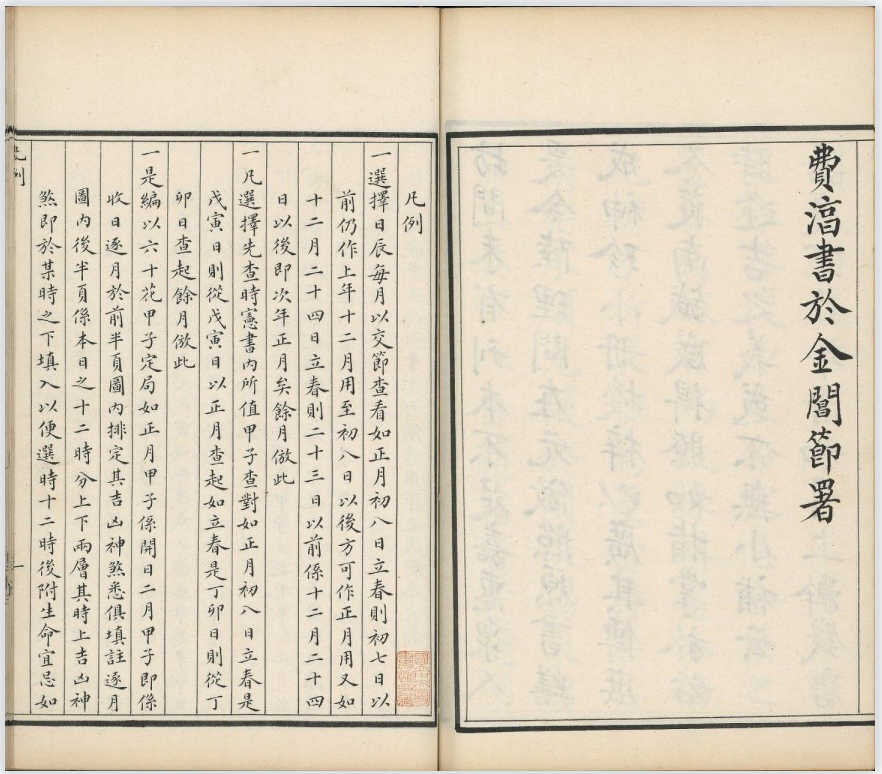 費淳書於金閶節署
凡例
一選擇日辰每月以交節查看如正月初八日立春則初七日以
前仍作上年十二月用至初八日以後方可作正月用又如
十二月二十四日立春則二十三日以前係十二月二十四
日以後即次年正月矣餘月倣此
一凡選擇先查時憲書內所值甲子查對如正月初八日立春是
戊寅日則從戊寅日以正月查起如立春是丁卯日則從丁
卯日查起餘月倣此
一是編以六十花甲子定局如正月甲子係開日二月甲子即係
收日逐月於前半頁圖內排定其吉凶神煞悉俱填註逐月
圖內後半頁係本日之十二時分上下兩層其時上吉凶神
煞即於某時之下填入以便選時十二時後附生命宜忌如
凡例
一